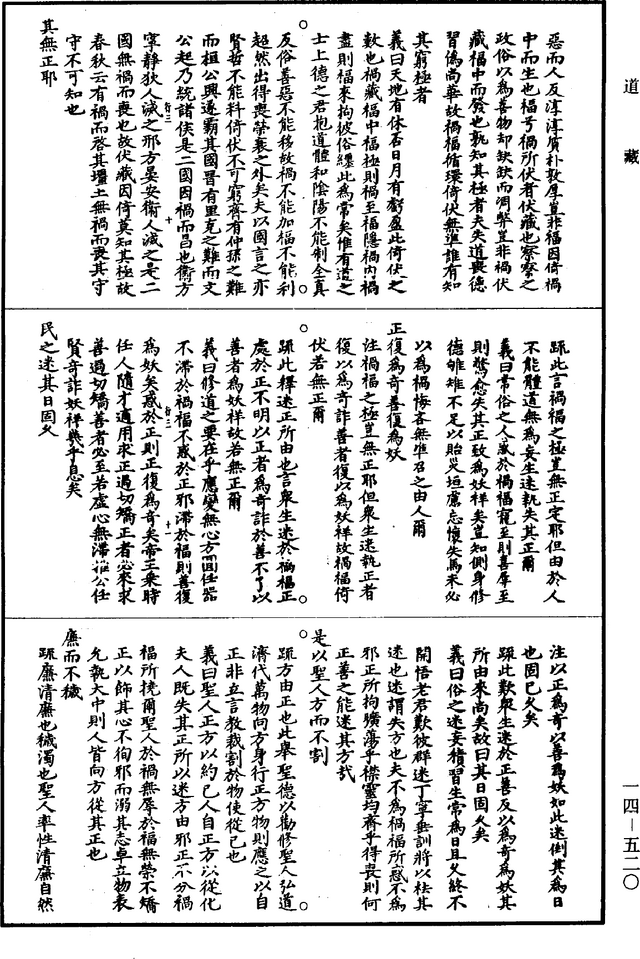 道藏
惡而人反淳淳質朴敦厚豈非福因倚禍
中而生也福兮禍所伏者伏藏也察察之
政俗以為善物却缺缺而凋弊豈非禍伏
藏福中而發也孰知其極者夫失道喪德
習偽尚華故禍福循環倚伏無準誰有知
其窮極者
義曰天地有休否日月有虧盈此倚伏之
數也禍藏福中福極則禍至福隱禍內禍
盡則福來拘彼俗纏此為常矣惟有道之
士上德之君抱道體和陰陽不能制全真
反俗善惡不能移故禍不能加福不能利
超然出得喪榮衰之外矣夫以國言之亦
賢哲不能料倚伏不可窮齊有仲孫之難
而桓公興遂霸其國晉有里克之難而文
公起乃統諸侯是二國因禍而昌也衞方
寧靜狄人滅之邢方晏安衞人滅之是二
國無禍而喪也故伏藏因倚莫知其極故
春秋云有禍而啓其壃土無禍而喪其守
守不可知也
其無正耶
疏此言禍福之極豈無正定耶但由於人
不能體道無為妄生迷執失其正爾
義曰常俗之人惑於禍福寵至則喜辱至
則驚愈失其正致為妖祥矣豈知側身修
德雊雉不足以貽災垣廌忘懷失馬未必
以為禍悔吝無準召之由人爾
正復為奇善復為妖
注禍福之極豈無正耶但衆生迷執正者
復以為奇詐善者復以為妖祥故禍福倚
伏若無正爾
疏此釋迷正所由也言衆生迷於禍福正
處於正不明以正者為奇詐於善不了以
善者為妖祥故若無正爾
義曰修道之要在乎應變無心方圓任器
不滯於禍福不惑於正邪滯於福則善復
為妖矣惑於正則正復為奇矣帝王乘時
任人隨才適用求正過切矯正者必來求
善過切矯善者必至若虛心無滯推公任
賢奇詐妖祥無乎息矣
民之迷其日固久
注以正為奇以善為妖如此迷倒其為日
也固已久矣
疏此歎衆生迷於正善反以為奇為妖其
所由來尚矣故曰其日固久矣
義曰俗之迷妄積習生常為日且久終不
開悟老君歎彼群迷丁寧垂訓將以祛其
迷也迷謂失方也夫不為禍福所惑不為
邪正所拘獷蕩乎襟靈均齊乎得喪則何
正善之能迷其方哉
是以聖人方而不割
疏方由正也此舉聖德以勸修聖人弘道
濟代萬物向方身行正方物則應之以自
正非立言教裁割於物使從已也
義曰聖人正方以約已人自正方以從化
夫人既失其正所以迷方由邪正不分禍
福所撓爾聖人於禍無辱於福無榮不矯
正以飾其心不徇邪而溺其志卓立物表
允執大中則人皆向方從其正也
廉而不穢
疏廉清廉也穢濁也聖人率性清廉自然
一四-五二〇